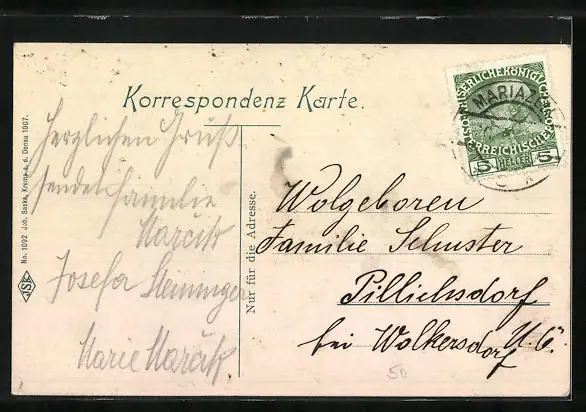 Korrespondenz Karte.
Herzlichen Gruß
sendet Familie
Marčik
Josefa Steininger
Marie Marčik
No. 1092 Joh. Saska, Krems a. d. Donau 1907.
JSK
Nur für die Adresse.
MARIAZ
KAISERLICHEKÖNIGLICHE
ÖSTERREICHISCHE
5 HELLER 5
Wolgeboren
Familie Schuster
Pillichsdorf
bei Wolkersdorf U. Ö.
50